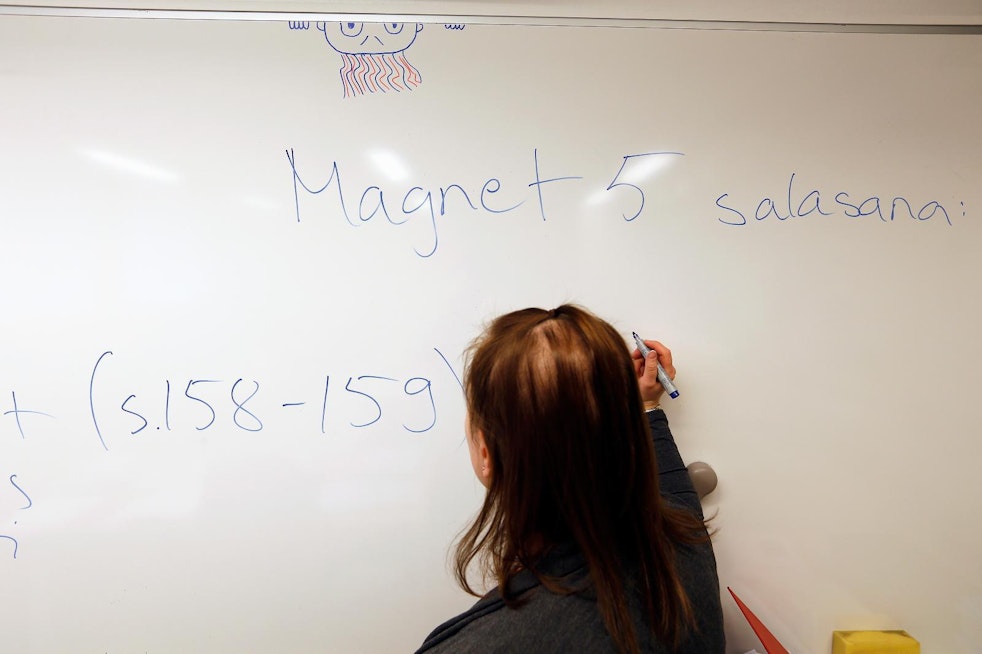 Magnet 5 salasana:
+ (s.158-159)
s